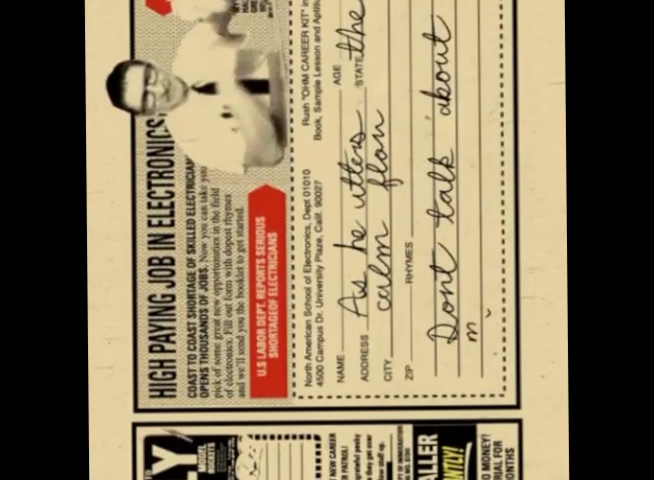 HIGH PAYING JOB IN ELECTRONICS
COAST TO COAST SHORTAGE OF SKILLED ELECTRICIAN
OPENS THOUSANDS OF JOBS. Now you can take you
pick of some great new opportunities in the field
of electronics. Fill out form with dopest rhymes
and we'll send you the booklet to get started.
U.S LABOR DEPT. REPORTS SERIOUS
SHORTAGE OF ELECTRICIANS
North American School of Electronics, Dept 01010
4500 Campus Dr. University Plaze, Calif. 90027
Rush "OHM CAREER KIT" in
Book, Sample Lesson and Aptitu
NAME
AGE
As he utters the
ADDRESS
STATE
calm flan
CITY
ZIP
RHYMES
Dont talk about
m
LY
MODEL
ROCKETS
NEW CAREER
PATROL!
ALLER
NTLY!
O MONEY!
RIAL FOR
MONTHS